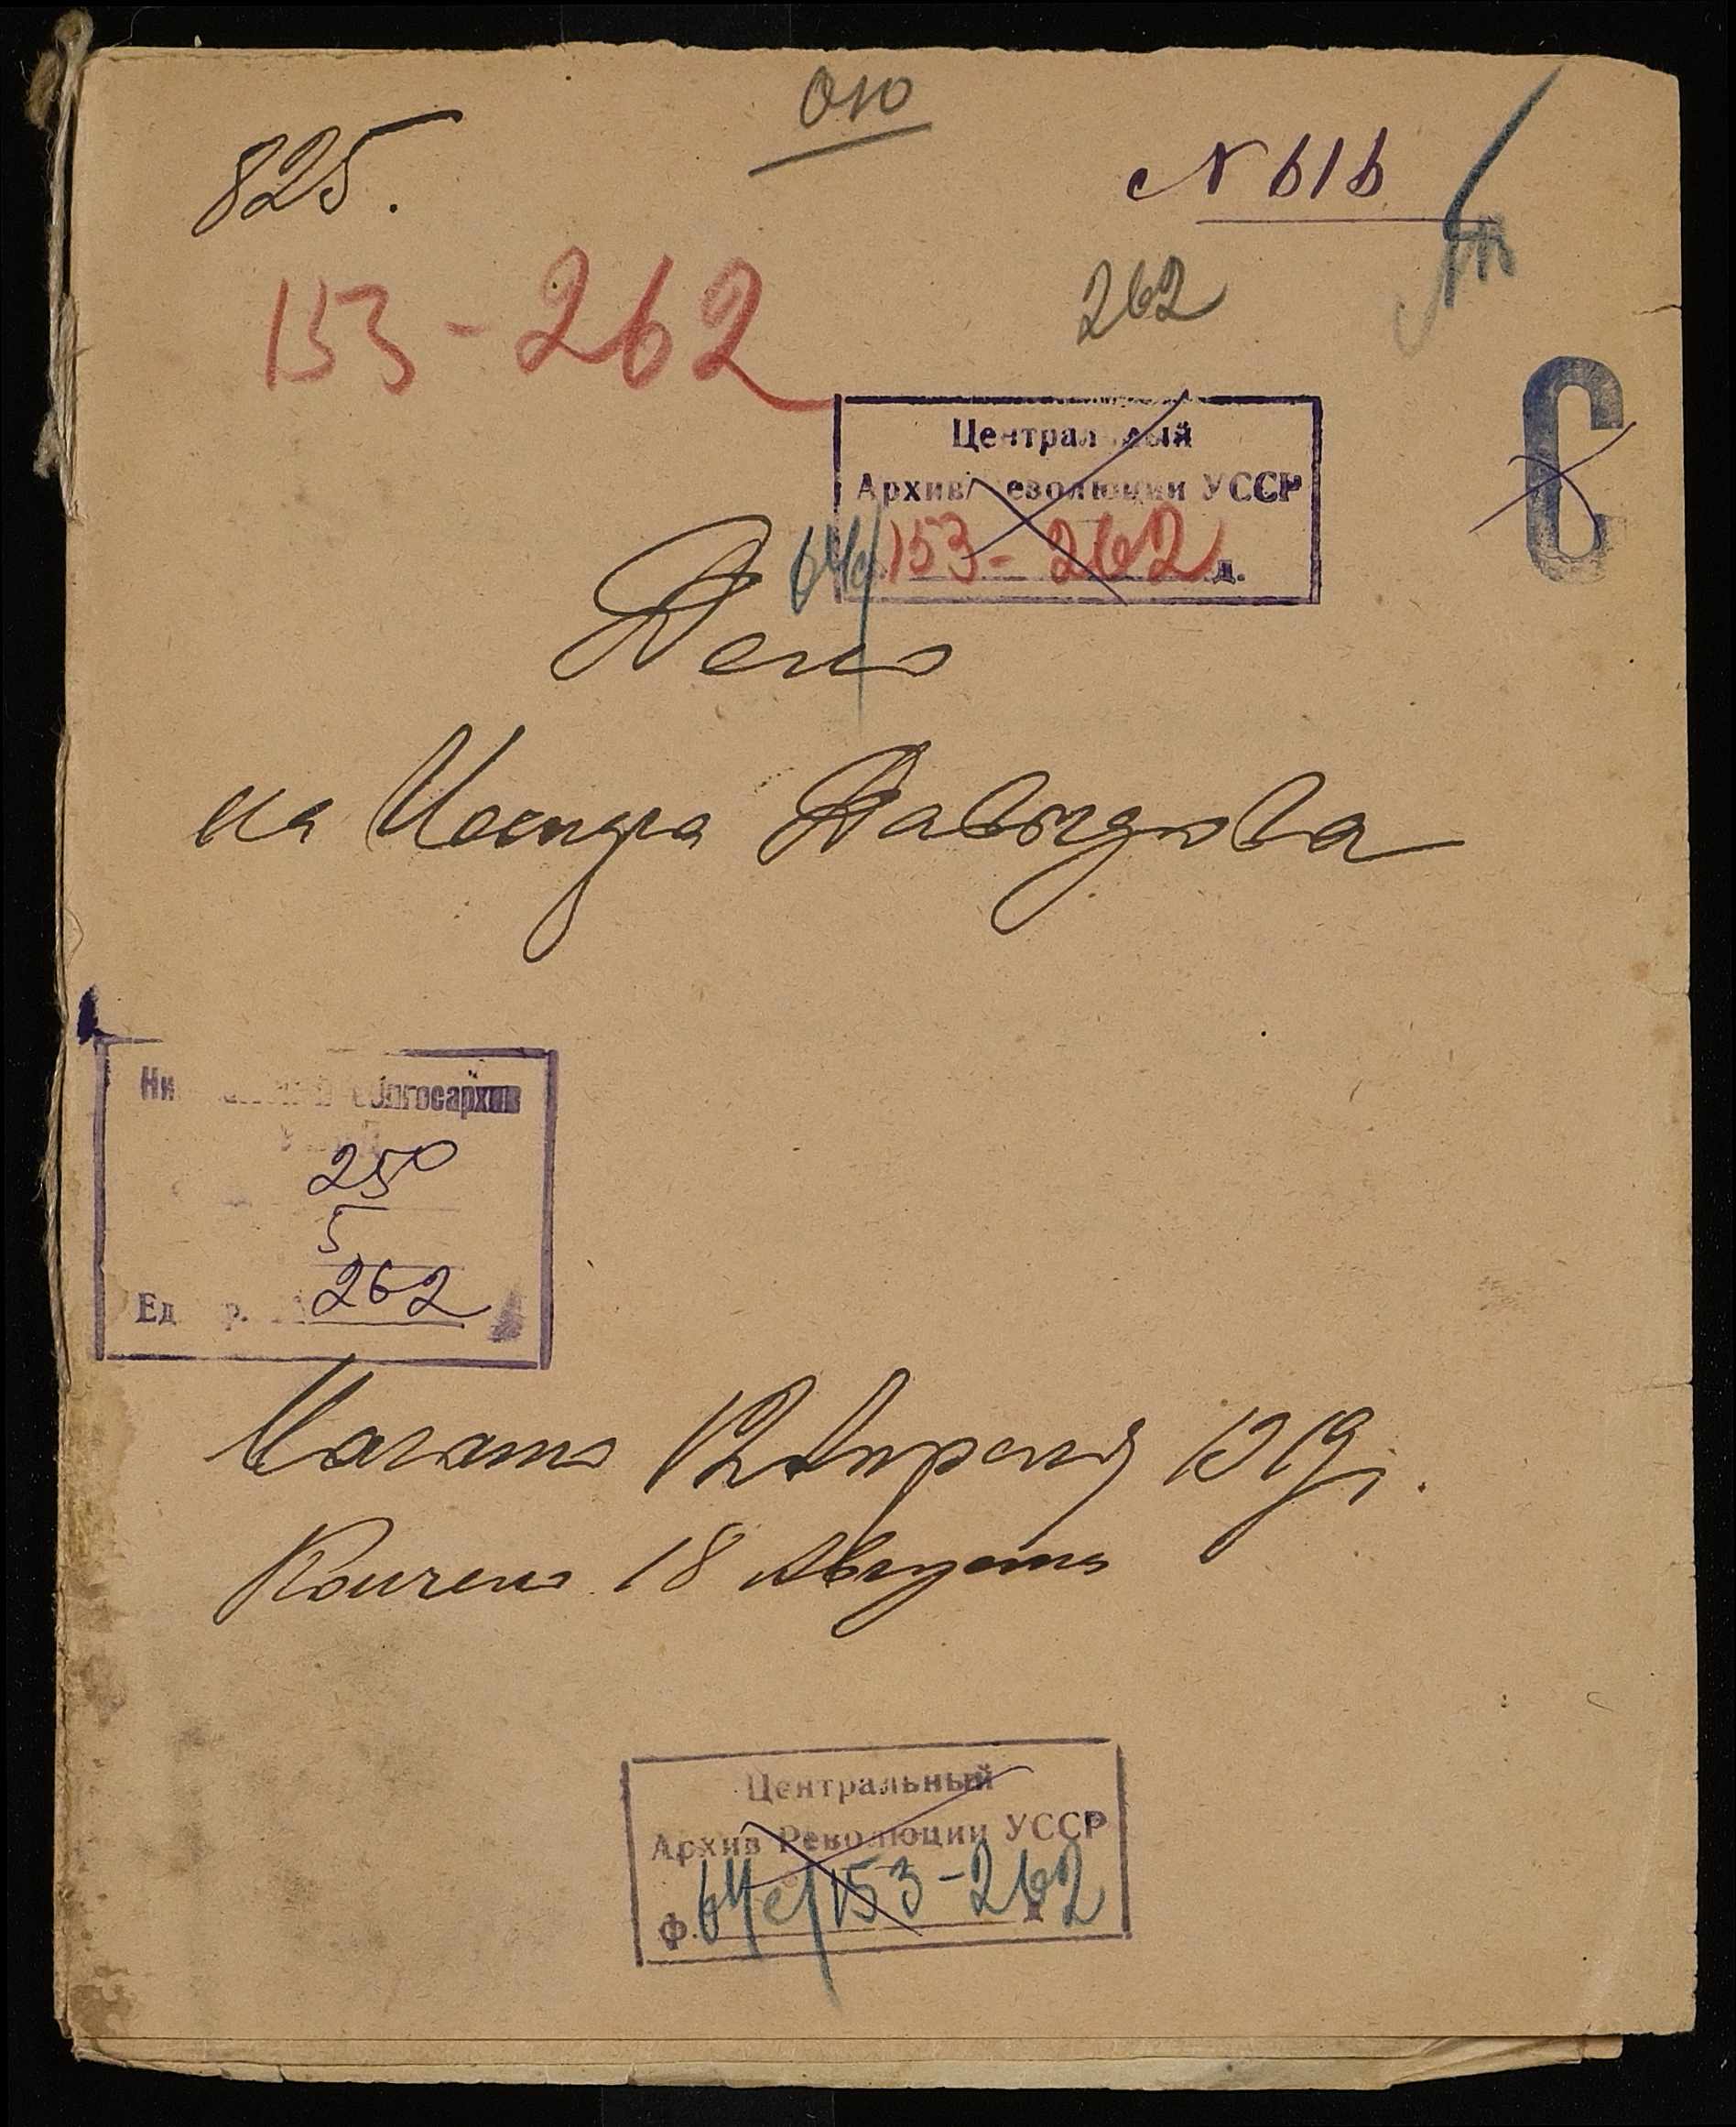 825.
ОЮ
№ 616
153-262
262
С
Центральный
Архив Революции УССР
64с/153-262 д.
Дело
на Нестра Давыдова
250
5
Ед. р. 262
Начато 12 Апреля 1919 г.
Кончено 18 Августа
Центральный
Архив Революции УССР
ф. 64с/153-262